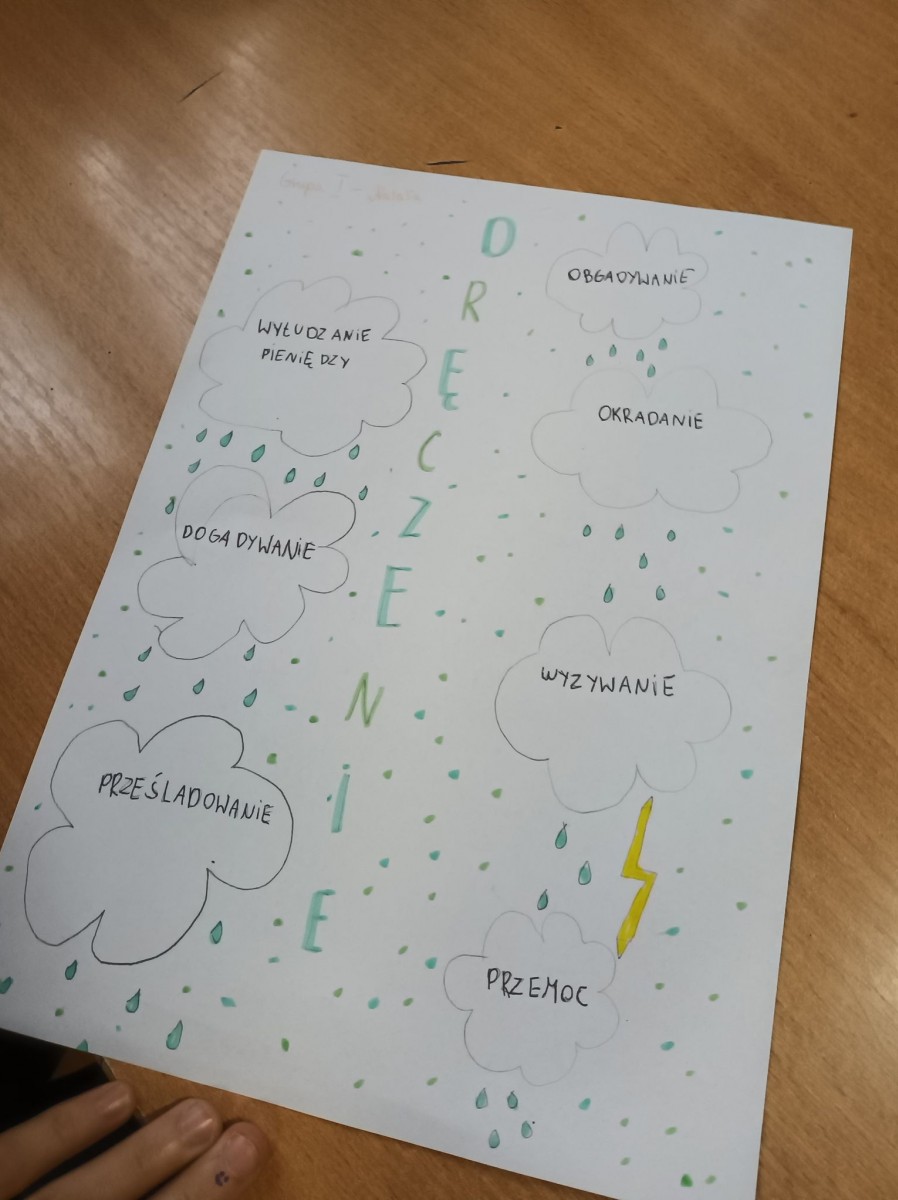 Grupa I -
DRĘCZENIE
WYŁUDZANIE
PIENIĘDZY
DOGADYWANIE
PRZEŚLADOWANIE
OBGADYWANIE
OKRADANIE
WYZYWANIE
PRZEMOC